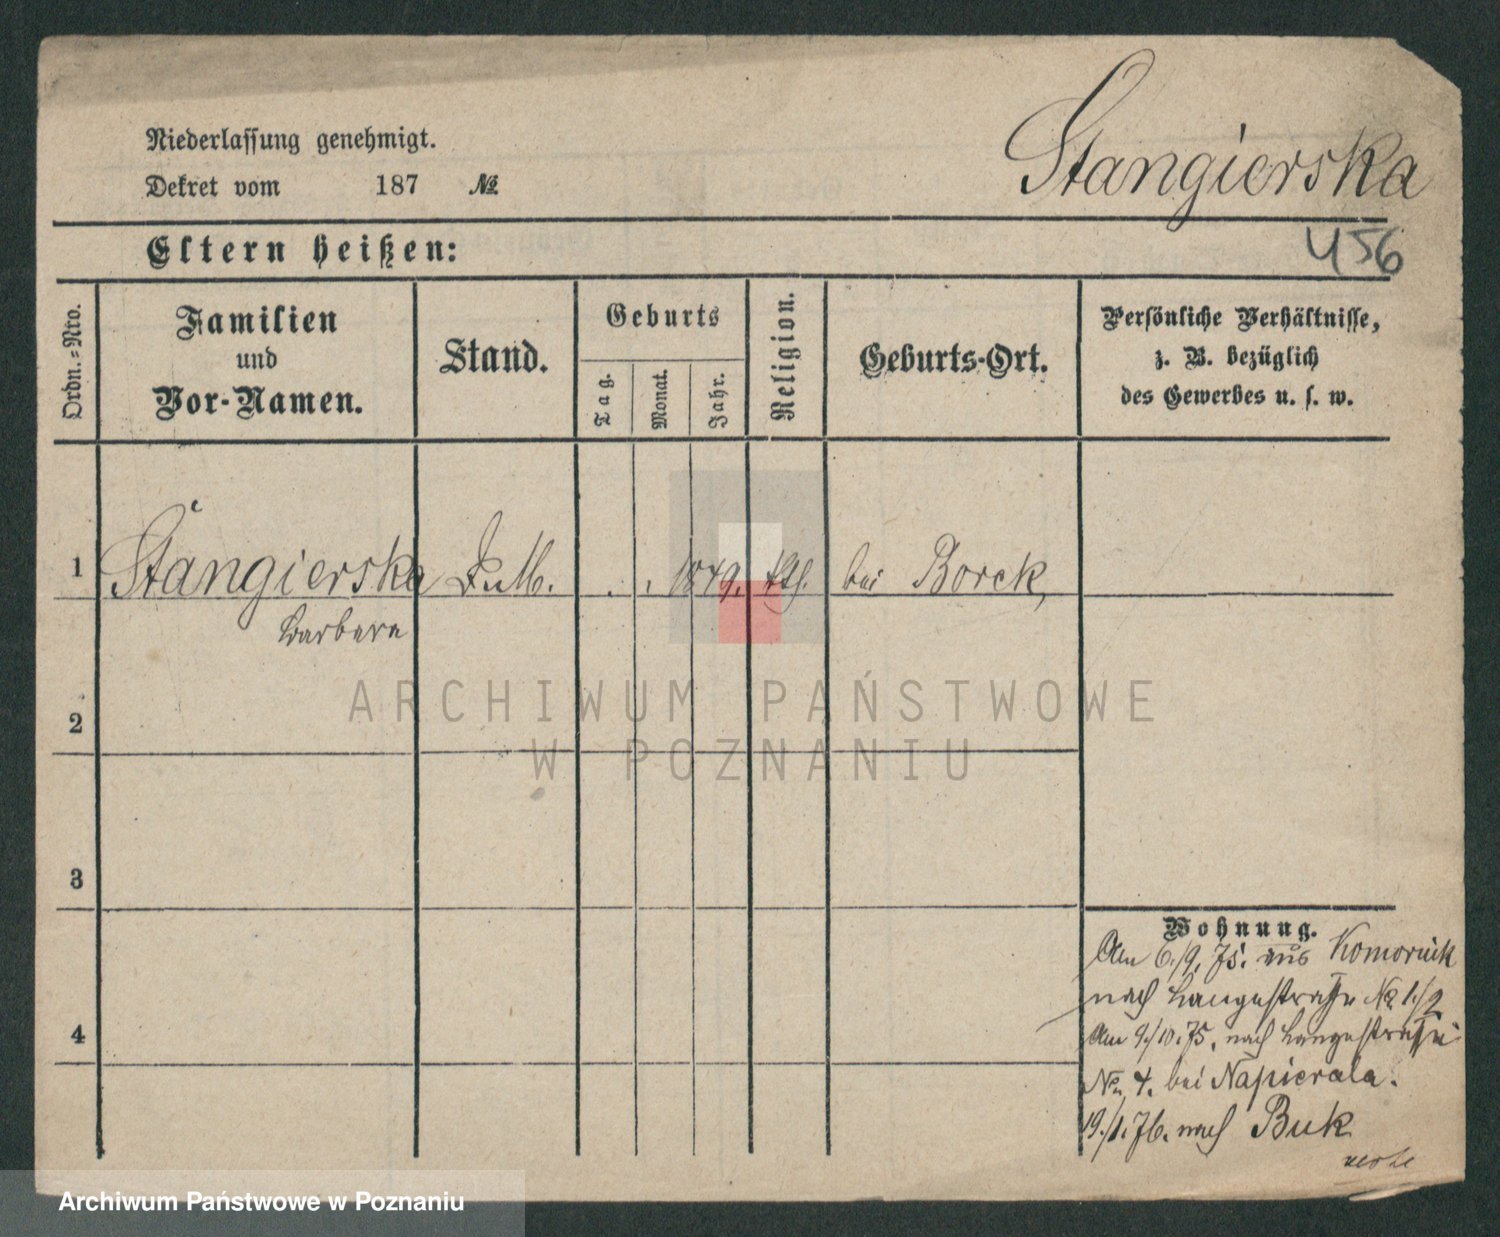 Stangierska
Niederlassung genehmigt.
Dekret vom 187 №
Eltern heißen:
456
Ordn.-Nro.
Familien
und
Vor-Namen.
Stand.
Geburts
Tag.
Monat.
Jahr.
Religion.
Geburts-Ort.
Persönliche Verhältnisse,
z. B. bezüglich
des Gewerbes u. s. w.
1 Stangierska . . 1849. kth. bei Borek,
Barbara
2
3
4
Wohnung.
Am 6./9. 75. aus Komornik
nach Langestraße № 1./2
Am 9./10. 75. nach Langestraße
№ 4. bei Napierala.
19./1. 76. nach Buk
ARCHIWUM PAŃSTWOWE
W POZNANIU
Archiwum Państwowe w Poznaniu